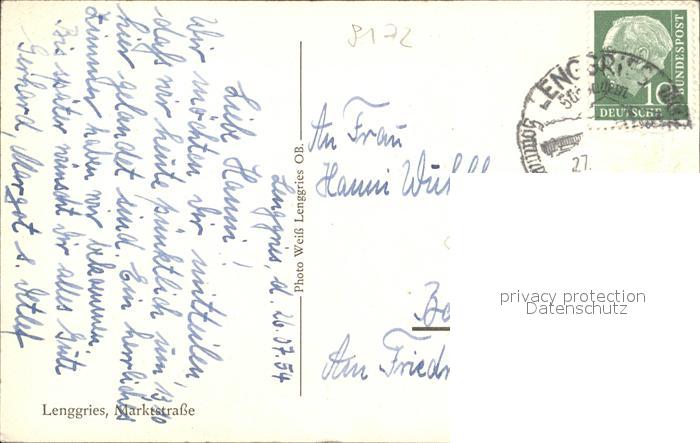 Lenggries, d. 26.07.54
Liebe Hanni!
Wir möchten Dir mitteilen
daß wir heute pünktlich um 13
hier gelandet sind. Ein herrliches
Zimmer haben wir bekommen
Bis später wünscht Dir alles Gute
Gerhard, Margot u. Detlef
Lenggries, Marktstraße
Photo Weiß Lenggries OB.
9172
An Frau
Hanni
Am Friedr
LENGGRIES
27.
10
DEUTSCHE
BUNDESPOST
privacy protection
Datenschutz